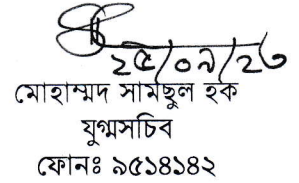 ২৫/০৯/২৩
মোহাম্মদ সামছুল হক
যুগ্মসচিব
ফোনঃ ৯৫১৪১৪২